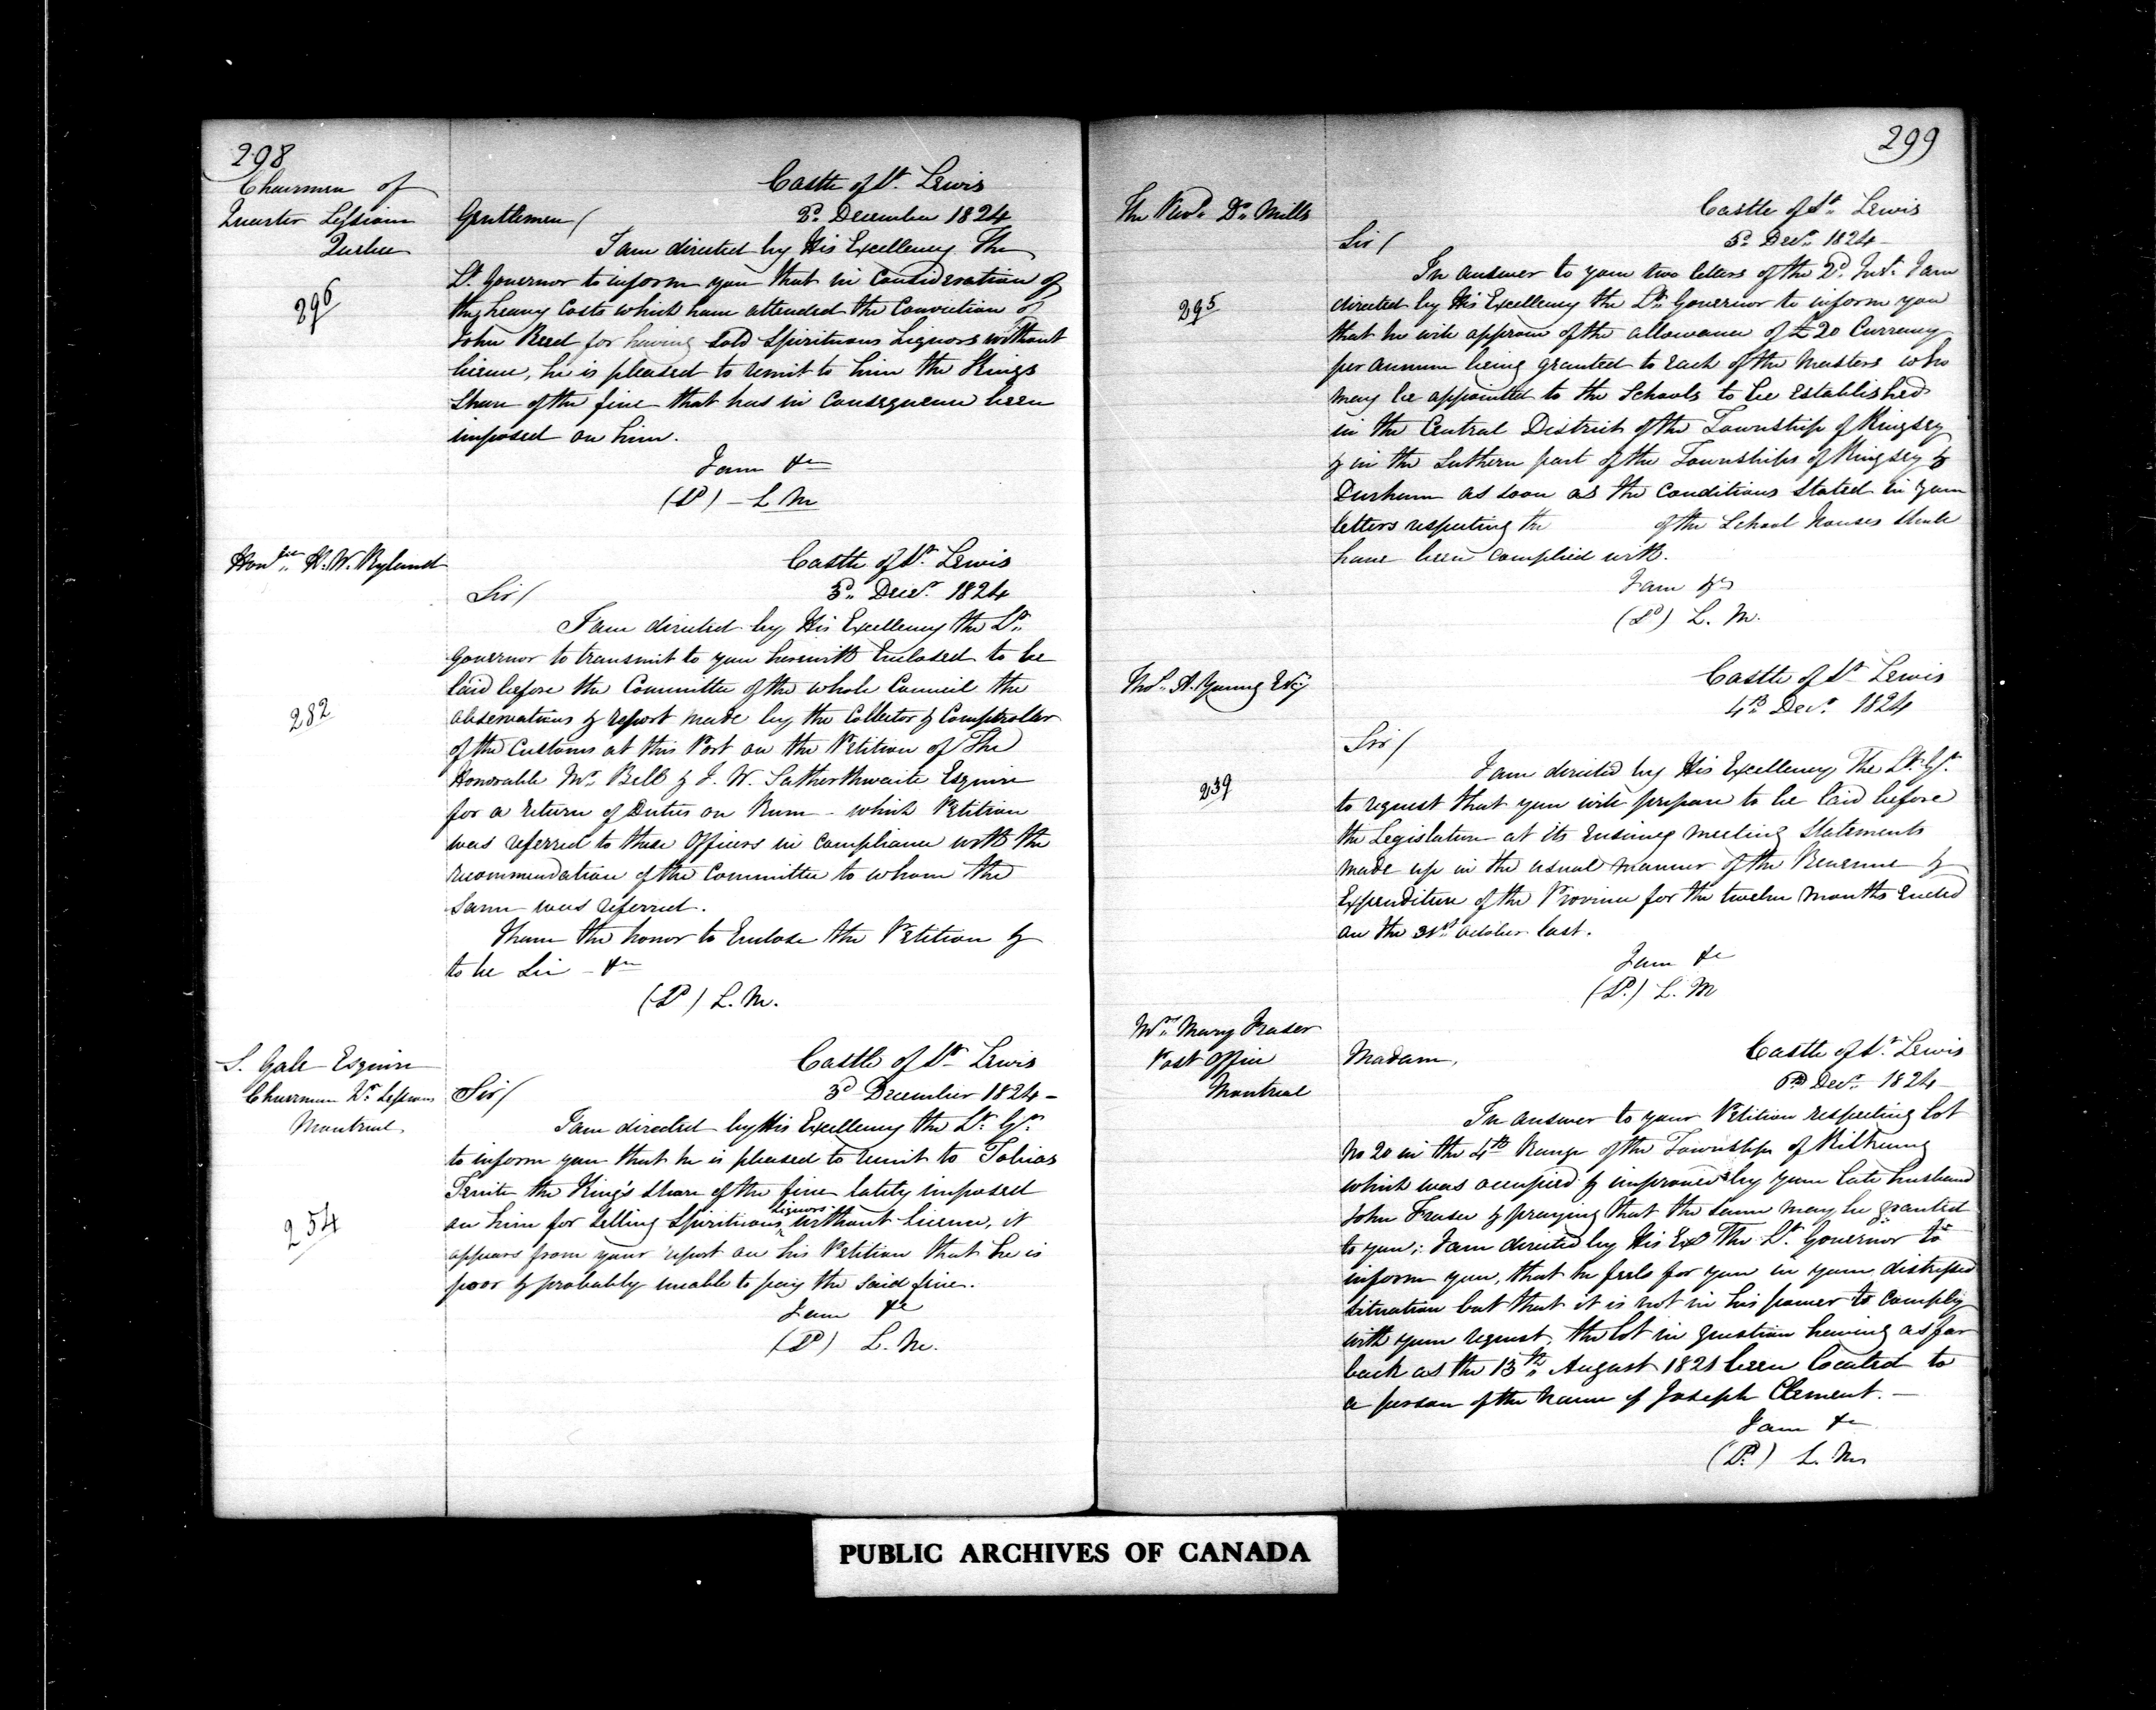 298
Chairmen of
Quarter Sessions
Quebec
296
Castle of St. Lewis
Gentlemen / 2d. December 1824
I am directed by His Excellency The
Lt. Governor to inform you that in Consideration of
the heavy Costs which have attended the Conviction of
John Reed for having Sold Spirituous Liquors without
licence, he is pleased to remit to him the Kings
Share of the fine that has in Consequence been
imposed on him.
I am &c
(Sd) - L M
Honble. H. W. Ryland
282
Castle of St. Lewis
Sir / 3d. Decr. 1824
I am directed by His Excellency the Lt.
Governor to transmit to you herewith Enclosed to be
laid before the Committee of the whole Council the
observations & report made by the Collector & Comptroller
of the Customs at this Port on the Petition of The
Honorable Mr. Bell & J. W. Satherthwaite Esquire
for a return of Duties on Rum - which Petition
was referred to these Officers in compliance with the
recommendation of the Committee to whom the
Same was referred.
I have the honor to Enclose the Petition &
to be Sir - &c
(Sd) L. M.
S. Gale Esquire
Chairman Qr. Sessions
Montreal
254
Castle of St. Lewis
Sir / 3d December 1824 -
I am directed by His Excellency the Lt. Gr.
to inform you that he is pleased to remit to Tobias
the King's Share of the fine lately imposed
on him for Selling Spirituous Liquors without Licence, it
appears from your report on his Petition that he is
poor & probably unable to pay the said fine.
I am &c
(Sd) L. M.
299
The Revd. Dr. Mills
295
Castle of St. Lewis
Sir / 3d. Decr. 1824 -
In answer to your two letters of the 2d. Inst. I am
directed by His Excellency the Lt. Governor to inform you
that he will approve of the allowance of £20 Currency
per annum being granted to Each of the Masters who
may be appointed to the Schools to be Established
in the Central District of the Township of Kingsey
& in the Suthern part of the Townships of Kingsey &
Durham as soon as the Conditions Stated in your
letters respecting the of the School Houses shall
have been Complied with.
I am &c
(Sd) L. M.
Thos. A. Young Esqr
239
Castle of St Lewis
4th. Decr. 1824
Sir /
I am directed by His Excellency The Lt. Gr.
to request that you will prepare to be laid before
the Legislature at its Ensuing meeting Statements
made up in the usual manner of the Revenue &
Expenditure of the Province for the twelve Months Ended
on the 31st. October last.
I am &c
(Sd.) L. M
Mrs. Mary Fraser
Post Office
Montreal
Castle of St. Lewis
Madam, 6th Decr. 1824
In answer to your Petition respecting Lot
No 20 in the 4th Range of the Township of Kilkenny
which was occupied & improved by your late husband
John Fraser & praying that the Same may be granted
to you; I am directed by His Exy The Lt. Governor to
inform you, that he feels for you in your distressed
Situation but that it is not in his power to Comply
with your request, the Lot in question having as far
back as the 13th. August 1821 been located to
a person of the name of Joseph Clement. -
I am &c
(Sd.) L. M
PUBLIC ARCHIVES OF CANADA